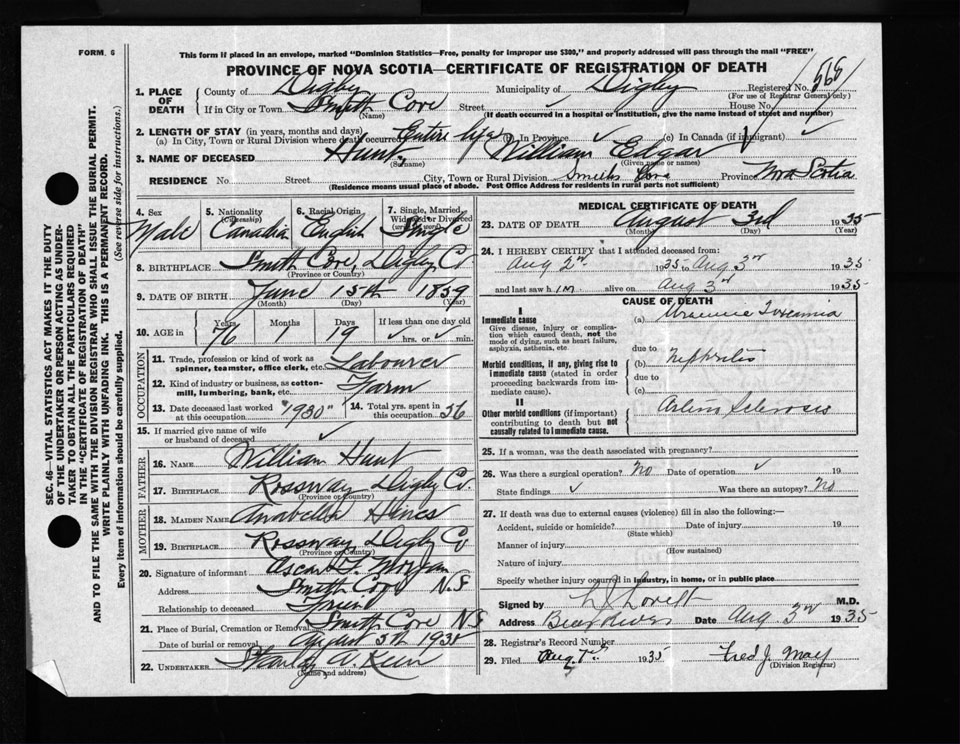 FORM. 6
This form if placed in an envelope, marked "Dominion Statistics—Free, penalty for improper use $300," and properly addressed will pass through the mail "FREE"
PROVINCE OF NOVA SCOTIA—CERTIFICATE OF REGISTRATION OF DEATH
SEC. 46— VITAL STATISTICS ACT MAKES IT THE DUTY
OF THE UNDERTAKER OR PERSON ACTING AS UNDER-
TAKER TO OBTAIN ALL THE PARTICULARS REQUIRED
IN THE "CERTIFICATE OF REGISTRATION OF DEATH"
AND TO FILE THE SAME WITH THE DIVISION REGISTRAR WHO SHALL ISSUE THE BURIAL PERMIT.
WRITE PLAINLY WITH UNFADING INK. THIS IS A PERMANENT RECORD.
Every item of information should be carefully supplied.
(See reverse side for instructions.)
1. PLACE OF DEATH County of Digby Municipality of Digby Registered No. 565
(For use of Registrar General only)
If in City or Town Smith Cove Street House No.
(Name) (If death occurred in a hospital or institution, give the name instead of street and number)
2. LENGTH OF STAY (in years, months and days)
(a) In City, Town or Rural Division where death occurred Entire life (b) In Province ✓ (c) In Canada (if immigrant) ✓
3. NAME OF DECEASED Hunt, William Edgar
(Surname) (Given name or names)
RESIDENCE No. Street City, Town or Rural Division Smiths Cove Province Nova Scotia
(Residence means usual place of abode. Post Office Address for residents in rural parts not sufficient)
4. Sex Male
5. Nationality (Citizenship) Canadian
6. Racial Origin English
7. Single, Married, Widowed or Divorced (write the word) Single
8. BIRTHPLACE Smith Cove, Digby Co
(Province or Country)
9. DATE OF BIRTH June 15th 1859
(Month) (Day) (Year)
10. AGE in Years Months Days If less than one day old
76 1 19 ✓ hrs. or ✓ min.
OCCUPATION
11. Trade, profession or kind of work as spinner, teamster, office clerk, etc. Labourer
12. Kind of industry or business, as cotton-mill, lumbering, bank, etc. Farm
13. Date deceased last worked at this occupation "1930"
14. Total yrs. spent in this occupation 56
15. If married give name of wife or husband of deceased ✓
FATHER
16. NAME William Hunt
17. BIRTHPLACE Rossway Digby Co.
(Province or Country)
MOTHER
18. MAIDEN NAME Anabella Hines
19. BIRTHPLACE Rossway Digby Co
(Province or Country)
20. Signature of informant Oscar F. Morgan
Address Smith Cove N.S
Relationship to deceased Friend
21. Place of Burial, Cremation or Removal Smith Cove N.S
Date of burial or removal August 5th 1935
22. UNDERTAKER
(Name and address)
MEDICAL CERTIFICATE OF DEATH
23. DATE OF DEATH August 3rd 1935
(Month) (Day) (Year)
24. I HEREBY CERTIFY that I attended deceased from:
Aug 2nd 1935 to Aug 3rd 1935
and last saw h im alive on Aug 3rd 1935
CAUSE OF DEATH
I
Immediate cause
Give disease, injury or complication which caused death, not the mode of dying, such as heart failure, asphyxia, asthenia, etc.
(a) Uraemic Toxemia
due to
Morbid conditions, if any, giving rise to immediate cause (stated in order proceeding backwards from immediate cause).
(b) Nephritis
due to
(c)
II
Other morbid conditions (if important) contributing to death but not causally related to immediate cause.
Arterio Sclerosis
25. If a woman, was the death associated with pregnancy?
26. Was there a surgical operation? No Date of operation ✓ 19
State findings ✓ Was there an autopsy? No
27. If death was due to external causes (violence) fill in also the following:—
Accident, suicide or homicide? Date of injury 19
(State which)
Manner of injury
(How sustained)
Nature of injury
Specify whether injury occurred in industry, in home, or in public place
Signed by Lovett M.D.
Address Bear River Date Aug 3rd 1935
28. Registrar's Record Number
29. Filed Aug 1935 Fred J. May
(Division Registrar)